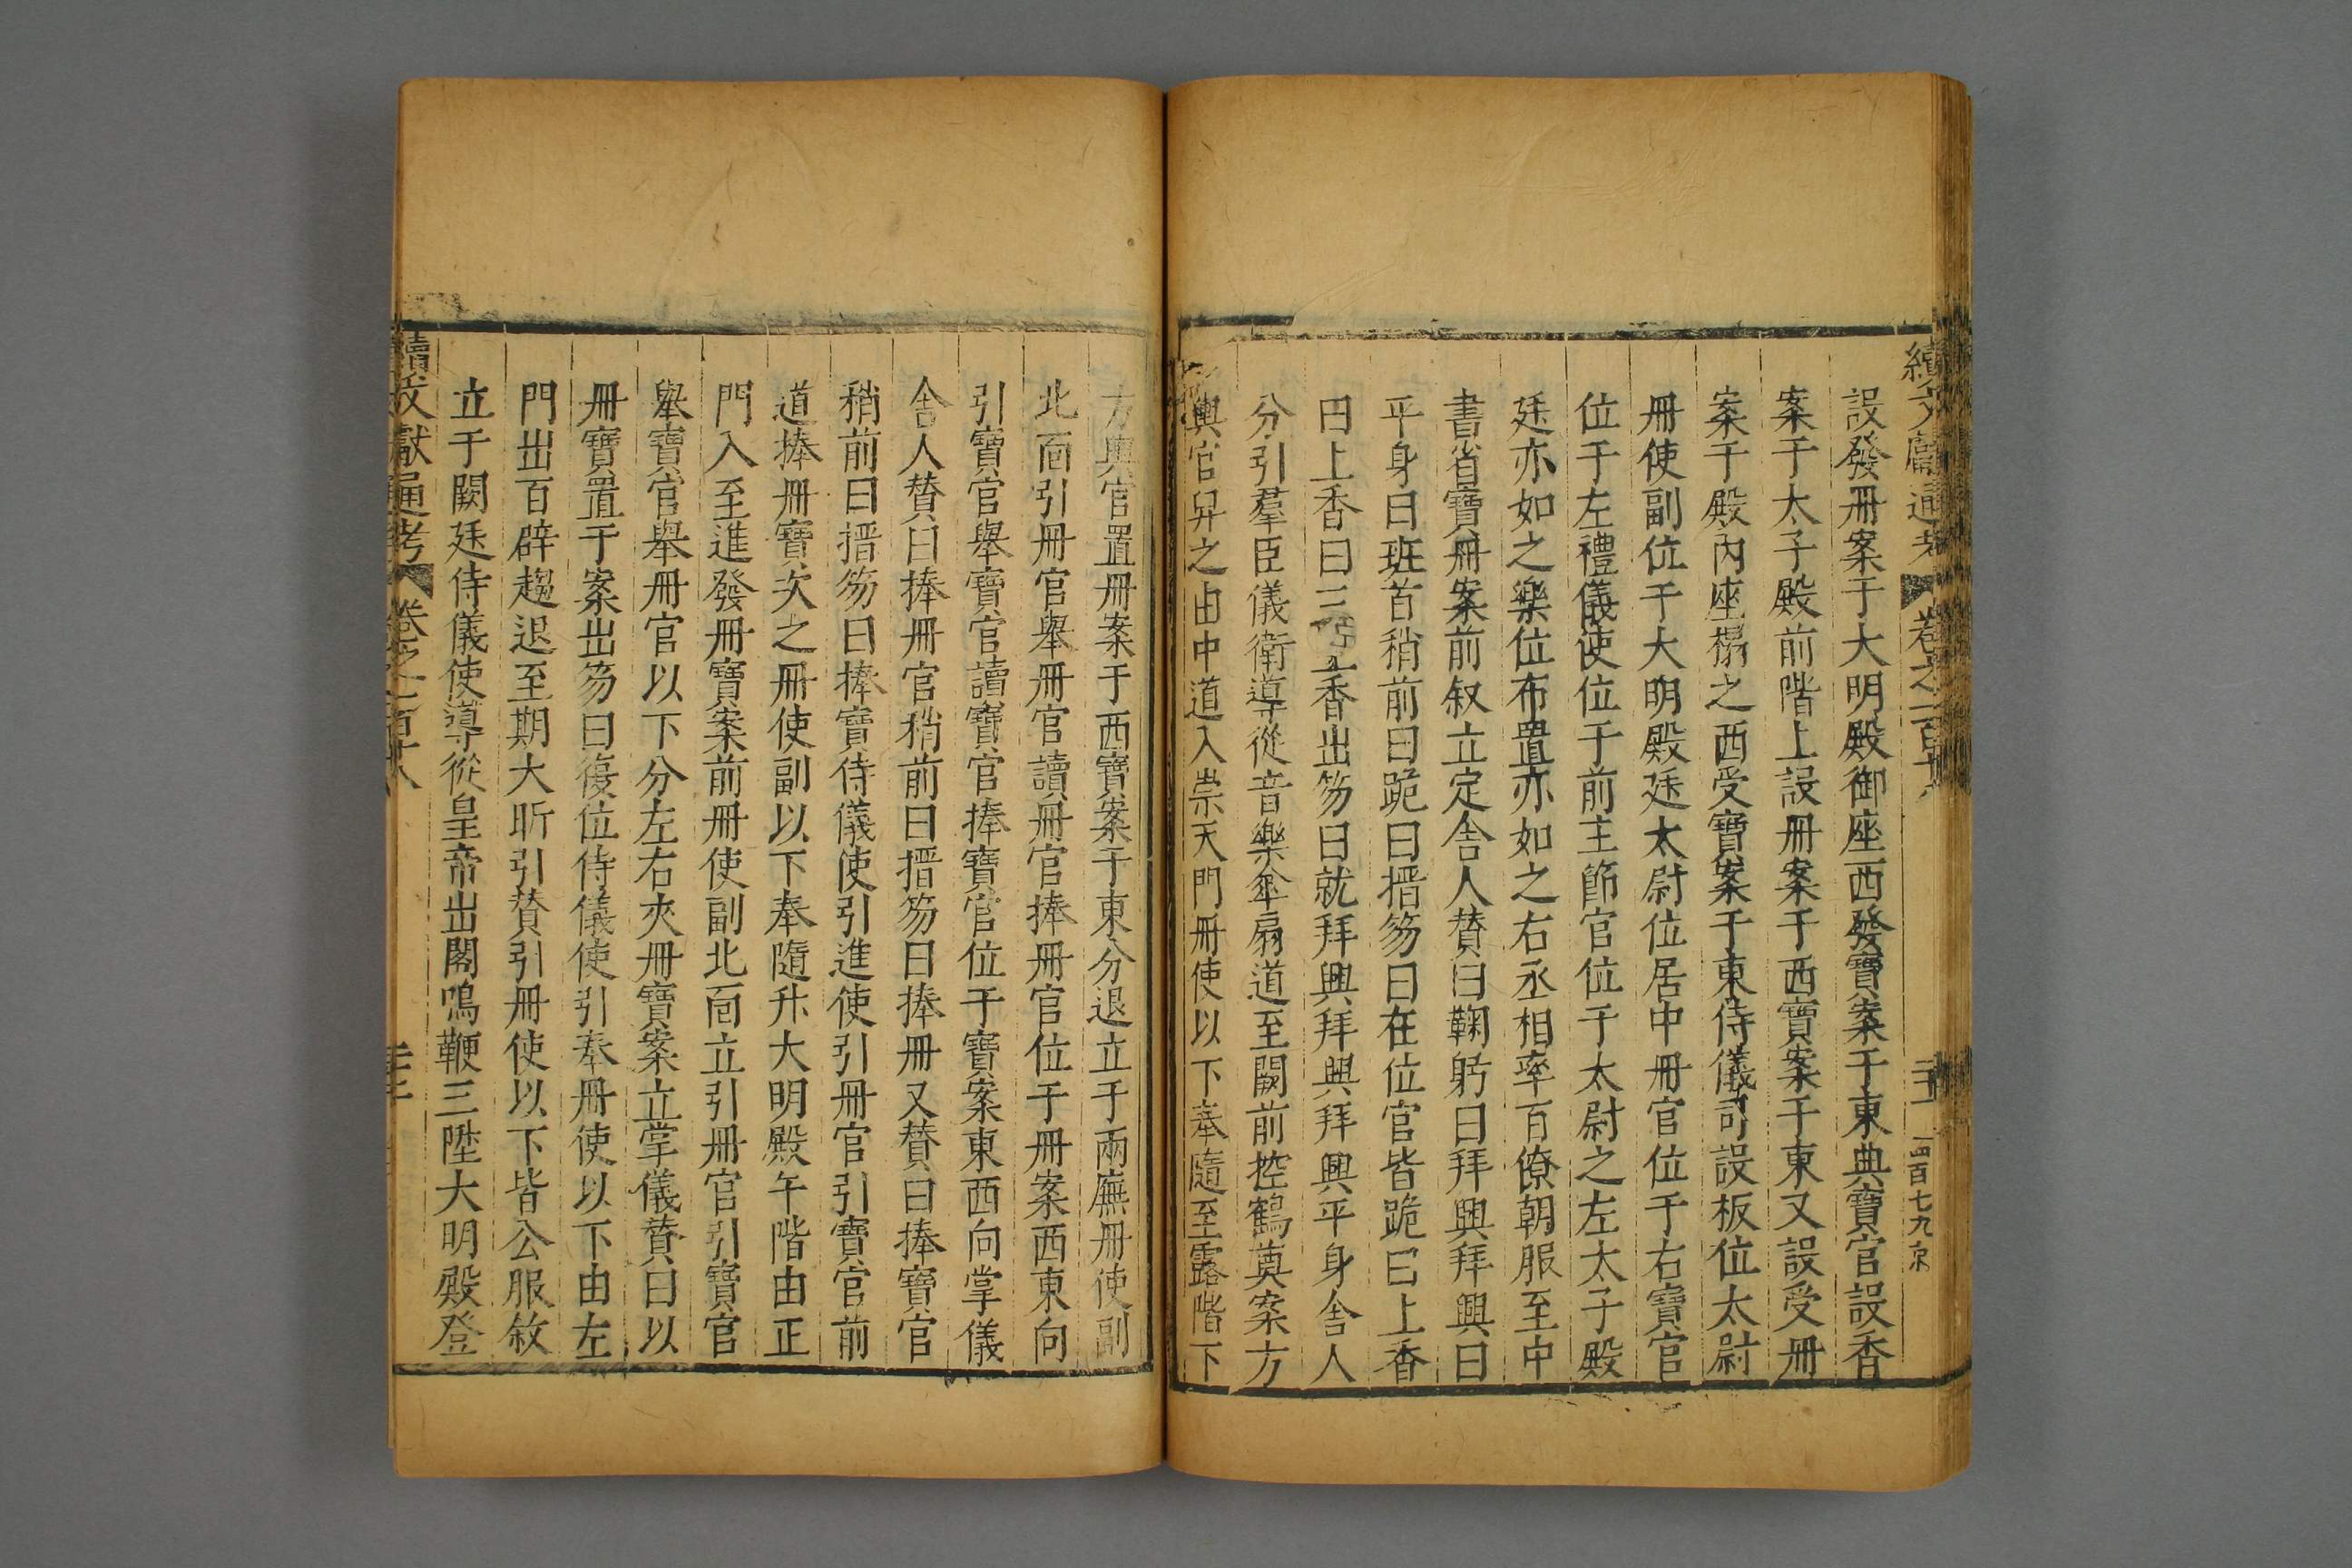 續文獻通考 卷之一百十八
設發冊案于大明殿御座西發寶案于東典寶官設香
案于太子殿前階上設冊案于西寶案于東又設受冊
案于殿內座榻之西受寶案于東侍儀司設板位太尉
冊使副位于大明殿廷太尉位居中冊官位于右寶官
位于左禮儀使位于前主節官位于太尉之左太子殿
廷亦如之樂位布置亦如之右丞相率百僚朝服至中
書省寶冊案前叙立定舍人贊曰鞠躬曰拜興拜興曰
平身曰班首稍前曰跪曰搢笏曰在位官皆跪曰上香
曰上香曰三上香出笏曰就拜興拜興拜興平身舍人
分引羣臣儀衛導從音樂傘扇道至闕前控鶴奠案方
輿官舁之由中道入崇天門冊使以下奉隨至露階下
方輿官置冊案于西寶案于東分退立于兩廡冊使副
北面引冊官舉冊官讀冊官捧冊官位于冊案西東向
引寶官舉寶官讀寶官捧寶官位于寶案東西向掌儀
舍人贊曰捧冊官稍前曰搢笏曰捧冊又贊曰捧寶官
稍前曰搢笏曰捧寶侍儀使引進使引冊官引寶官前
道捧冊寶次之冊使副以下奉隨升大明殿午階由正
門入至進發冊寶案前冊使副北面立引冊官引寶官
舉寶官舉冊官以下分左右夾冊寶案立掌儀贊曰以
冊寶置于案出笏曰復位侍儀使引奉冊使以下由左
門出百辟趨退至期大昕引贊引冊使以下皆公服敘
立于闕廷侍儀使導從皇帝出閣鳴鞭三陞大明殿登
續文獻通考 卷之一百十八